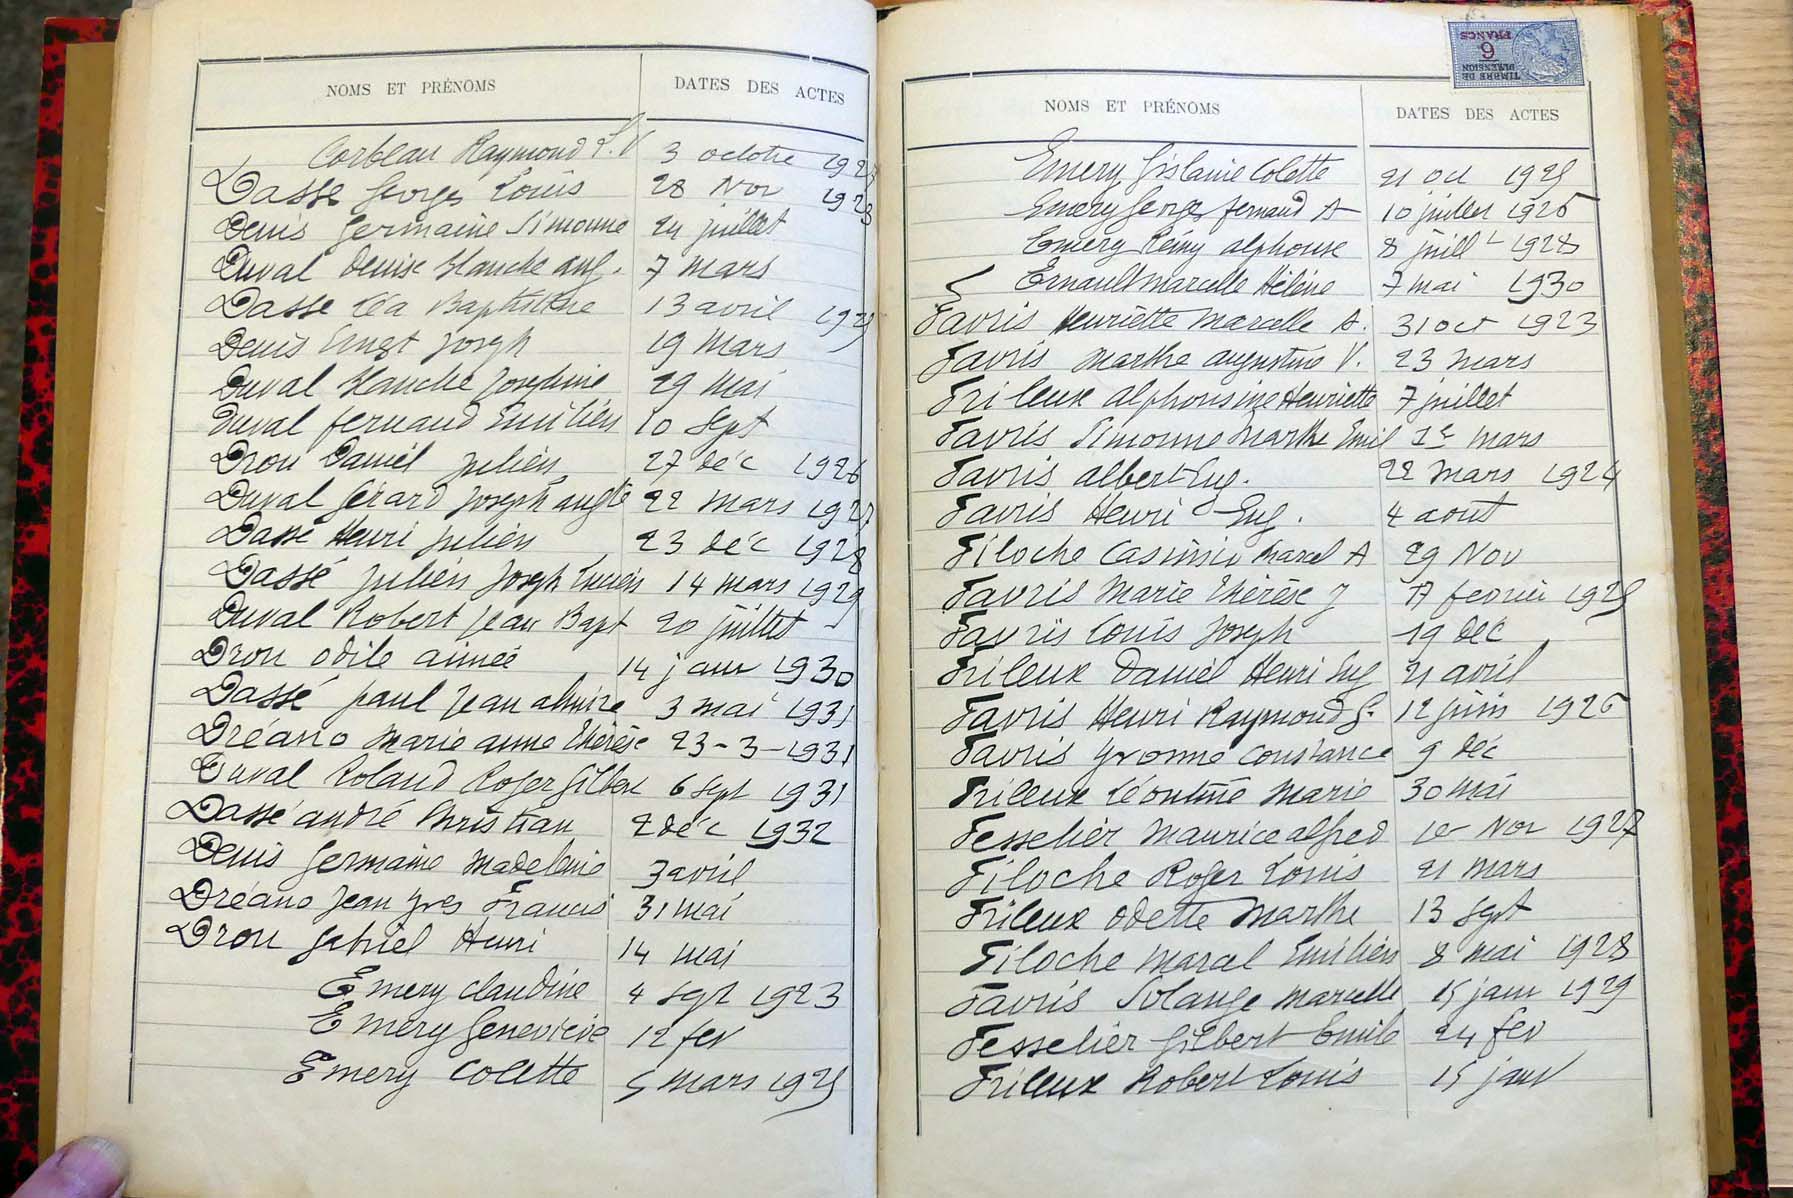 NOMS ET PRÉNOMS DATES DES ACTES
Corbeau Raymond L. V 3 octobre 192
Dasse Georges Louis 28 Nov 1923
Denis Germaine Simonne 24 juillet
Duval Denise Blanche aug. 7 mars
Dasse Léa Baptistine 13 avril 1925
Denis Ernest Joseph 19 Mars
Duval Blanche Josephine 29 Mai
Duval fernand Emilien 10 Sept
Drou Daniel Julien 27 déc 1926
Duval Gérard Joseph augte 22 mars 1927
Dassé Henri Julien 23 déc 1928
Dassé Julien Joseph Lucien 14 mars 1929
Duval Robert Jean Bapt 20 juillet
Drou Odile aimée 14 janv 1930
Dassé paul Jean almire 3 mai 1931
Dréano Marie anne Thérèse 23-3-1931
Duval Roland Roger Gilbert 6 sept 1931
Dassé andré Christian 2 déc 1932
Denis Germaine Madeleine 3 avril
Dréano Jean Yves Francis 31 mai
Drou Gabriel Henri 14 mai
Emery Claudine 4 sept 1923
Emery Geneviève 12 fev
Emery Colette 5 mars 1925
TIMBRE DE DIMENSION
6 FRANCS
NOMS ET PRÉNOMS DATES DES ACTES
Emery Gislaine Colette 21 oct 1925
Emery Georges fernand A 10 juillet 1926
Emery Rémy alphonse 8 juillt 1928
Ernault Marcelle Hélène 7 mai 1930
Favris Henriette Marcelle A. 31 oct 1923
Favris Marthe augustine V. 23 mars
Frileux alphonsine Henriette 7 juillet
Favris Simonne Marthe Emil 1er mars
Favris albert Eug. 22 mars 1924
Favris Henri Eug. 4 aout
Filoche Casimir Marcel A 29 Nov
Favris Marie Thérèse J 17 fevrier 1925
Favris Louis Joseph 19 dec
Frileux Daniel Henri Eug 21 avril
Favris Henri Raymond G. 12 juin 1926
Favris Yvonne Constance 9 déc
Frileux Léontine Marie 30 mai
Fesselier Maurice alfred 1er Nov 1927
Filoche Roger Louis 21 mars
Frileux Odette Marthe 13 sept
Filoche Marcel Emilien 8 mai 1928
Favris Solange Marcelle 15 janv 1929
Fesselier Gilbert Emile 24 fev
Frileux Robert Louis 15 janv